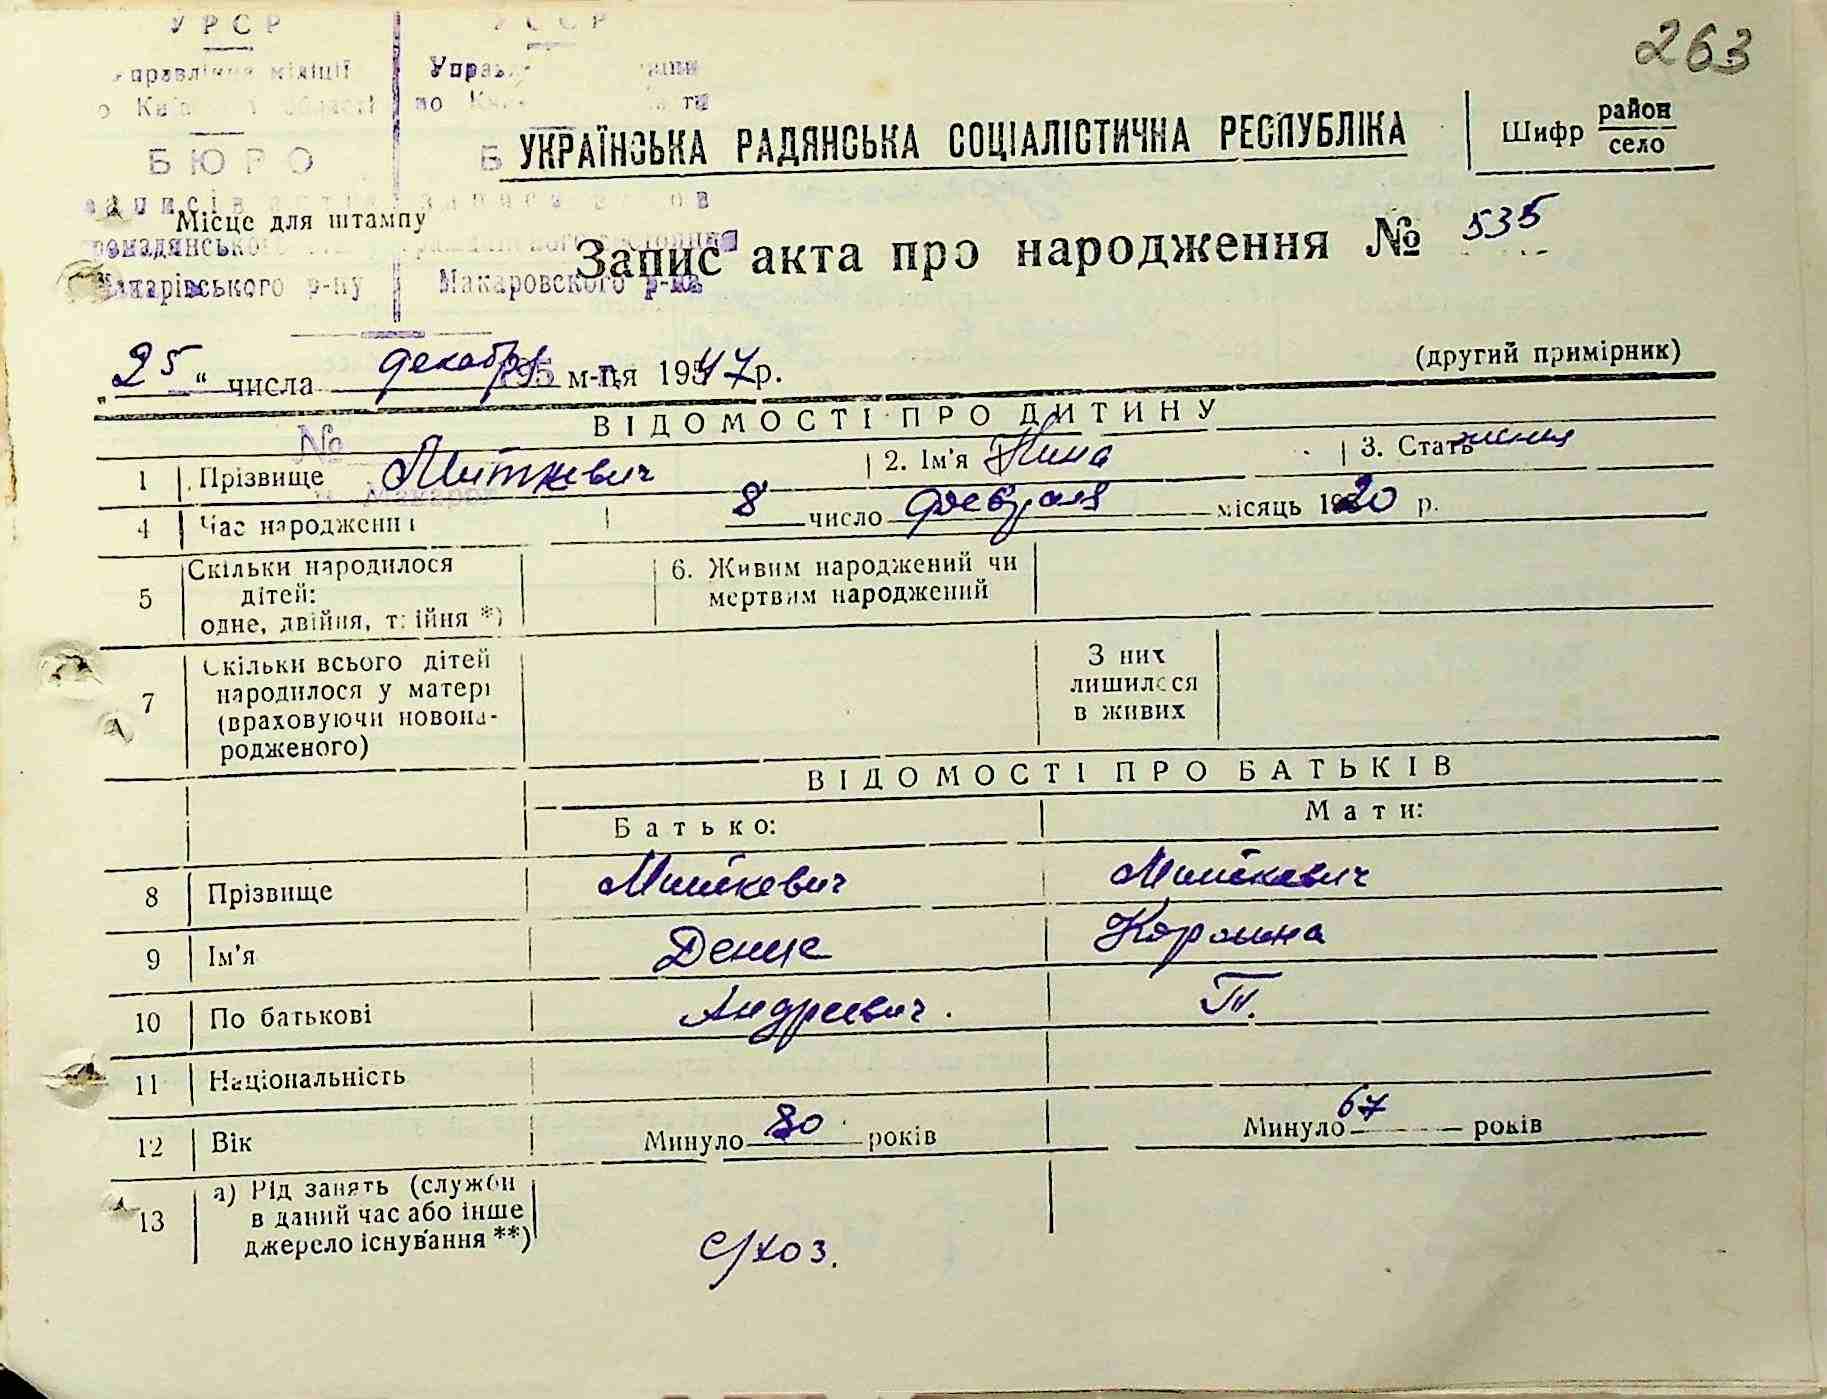 263
УРСР УССР
Управління міліції Управ
по Київ області по
БЮРО Б
УКРАЇНСЬКА РАДЯНСЬКА СОЦІАЛІСТИЧНА РЕСПУБЛІКА
Шифр район
село
записів актів записи
Місце для штампу
громадянського
Запис акта про народження № 535
Макарівського р-ну Макаровского р-на
„25“ числа декабря м-ця 1947 р.
(другий примірник)
ВІДОМОСТІ ПРО ДИТИНУ
№
1 Прізвище Миткевич 2. Ім'я Нина 3. Стать
м. Макаров
4 Час народження 8 число февраля місяць 1920 р.
5 Скільки народилося
дітей:
одне, двійня, трійня *)
6. Живим народжений чи
мертвим народжений
7 Скільки всього дітей
народилося у матері
(враховуючи новона-
родженого)
З них
лишилося
в живих
ВІДОМОСТІ ПРО БАТЬКІВ
Батько: Мати:
8 Прізвище Миткевич Миткевич
9 Ім'я Денис
10 По батькові Андреевич. Т.
11 Національність
12 Вік Минуло 30 років Минуло 67 років
13 а) Рід занять (служби
в даний час або інше
джерело існування **)
с/хоз.